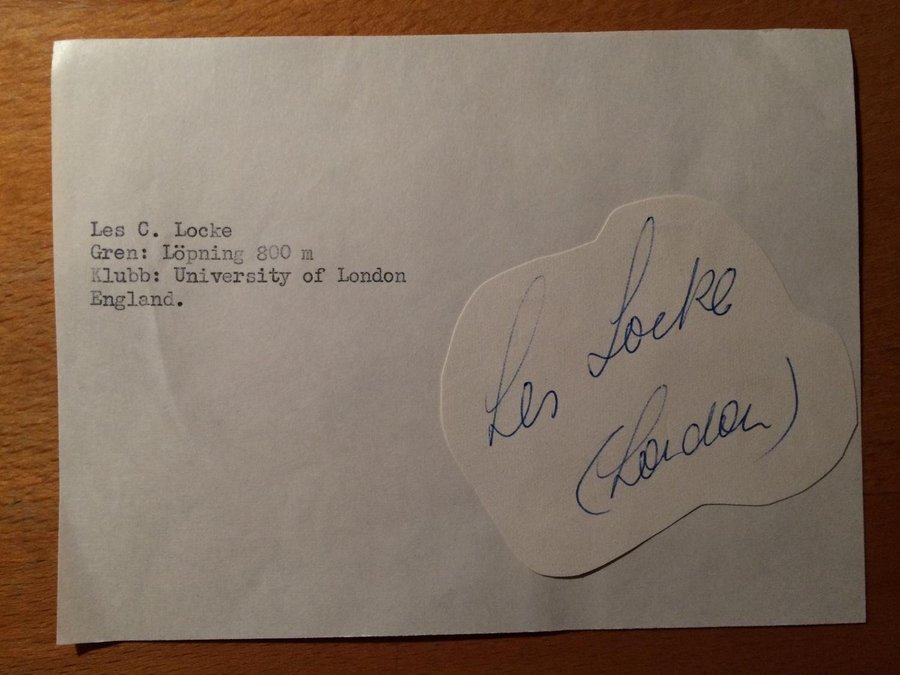 Les C. Locke
Gren: Löpning 800 m
Klubb: University of London
England.
Les Locke
(London)